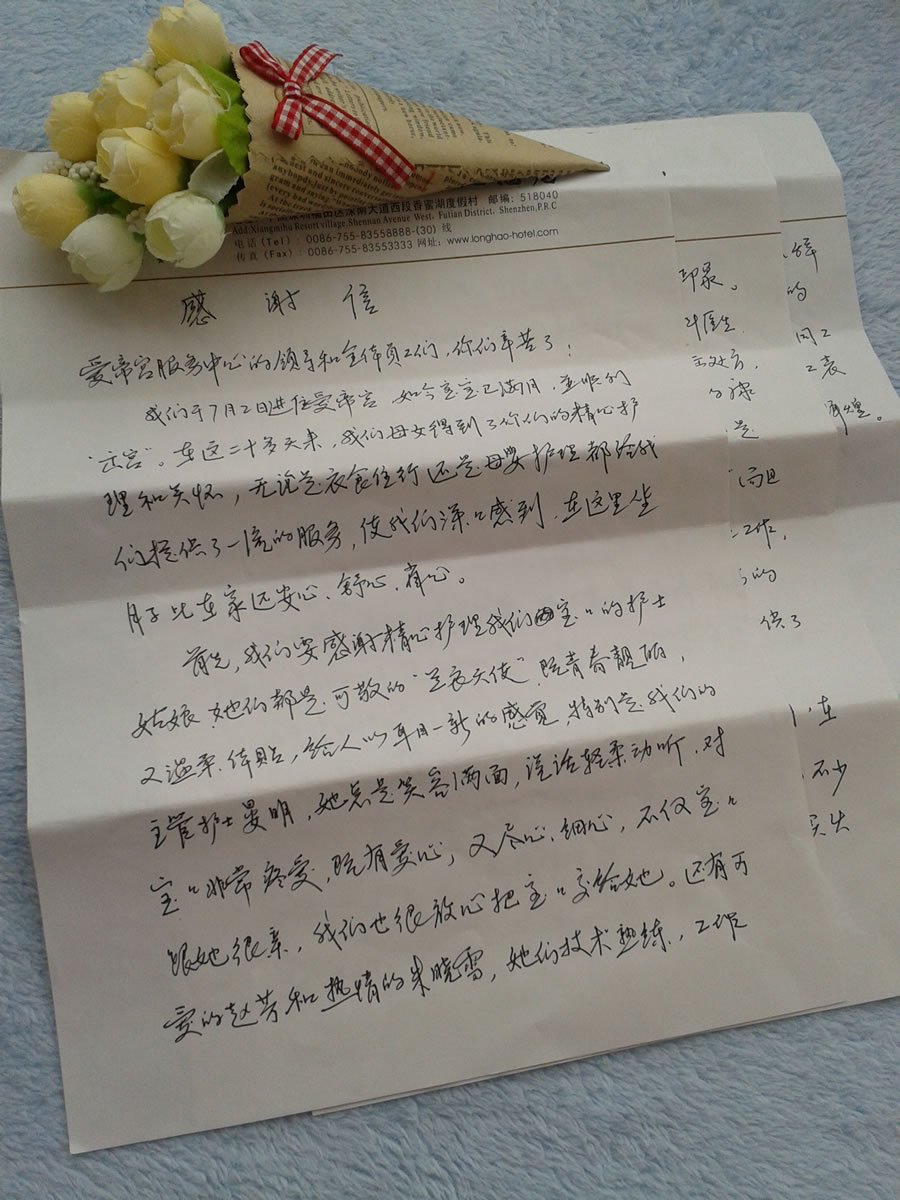 区深南大道西段香蜜湖度假村 邮编: 518040
Add Xiangmihu Resort village. Shennan Avenue West. Futian District. Shenzhen, P.R.C
电话(Tel): 0086-755-83558888-(30) 线
传真(Fax): 0086-755-83553333 网址: www.longhao-hotel.com
感谢信
爱帝宫服务中心的领导和全体员工们,你们辛苦了!
我们于7月2日进住爱帝宫 如今宝宝已满月,并顺利
"出宫"。在这二十多天来,我们母女得到了你们的精心护
理和关怀,无论是衣食住行还是母婴护理都给我
们提供了一流的服务,使我们深深感到,在这里坐
月子比在家还安心、舒心、有心。
首先,我们要感谢精心护理我们宝宝的护士
姑娘,她们都是可敬的"白衣天使",既青春靓丽,
又温柔体贴,给人以耳目一新的感觉,特别是我们的
主管护士晏明,她总是笑容满面,说话轻柔动听,对
宝宝非常疼爱,既有爱心,又尽心、细心,不仅宝宝
跟她很亲,我们也很放心把宝宝交给她。还有可
爱的赵芳和热情的朱晓雪,她们技术熟练,工作
印象。
医生
是
而且
工作,
的
供了
的
同工
辉煌。
在
不少